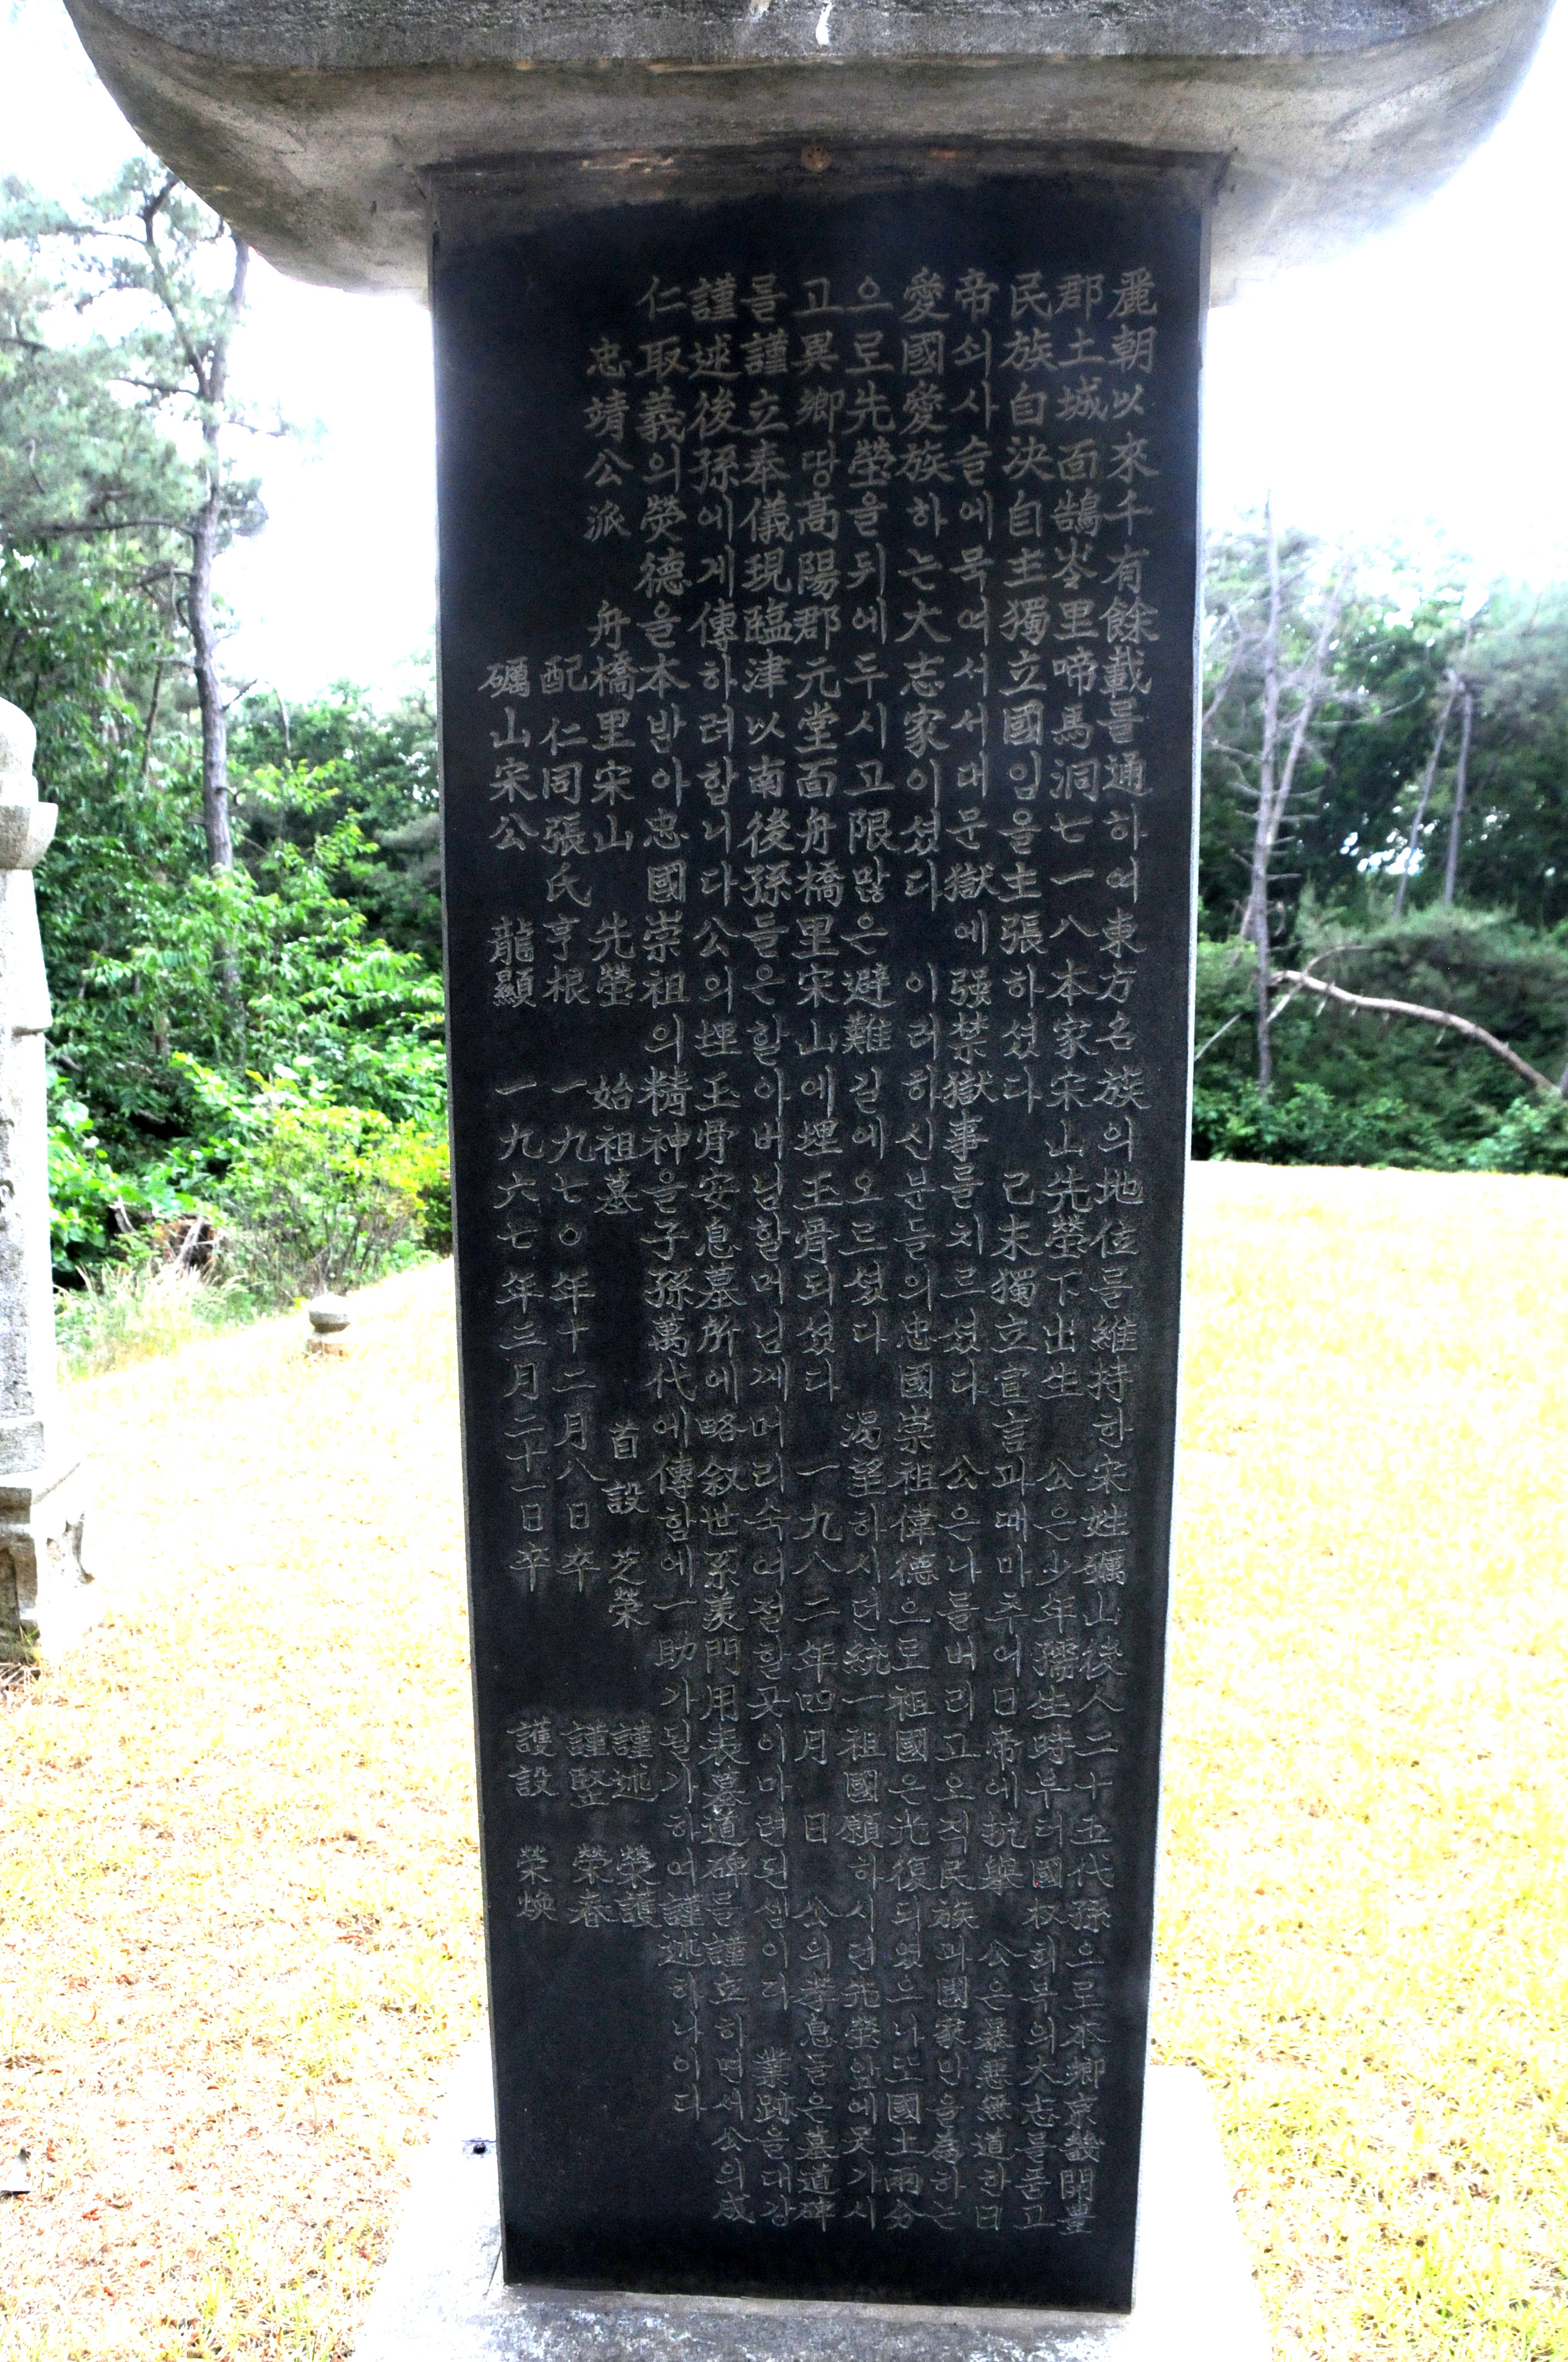 麗朝以來千有餘載를通하여東方名族의地位를維持한宋姓礪山後人二十五代孫으로本鄕京畿開豊
郡土城面鵠岺里啼馬洞七一八本家宋山先塋下出生 公은少年孺生時부터國权회부의大志를품고
民族自決自主獨立國임을主張하셨다 己未獨立宣言과때마추어日帝에抗與 公은暴惡無道한日
帝쇠사슬에묵여서서대문獄에强禁獄事를치르셨다 公은나를버리고오직民族과國家만을爲하는
愛國愛族하는大志家이셨다 이러하신분들의忠國崇祖偉德으로祖國은光復되였으나또國土兩分
으로先塋을뒤에두시고限많은避難길에오르셨다 渴望하시던統一祖國願하시던先塋앞에못가시
고異鄕땅高陽郡元堂面舟橋里宋山에埋玉骨되셨다 一九八二年四月 日 公의孝息들은墓道碑
를謹立奉儀現臨津以南後孫들은할아버님할머님께머리숙여절할곳이마련된셈이다 業跡을대강
謹述後孫에게傳하려합니다公의埋玉骨安息墓所에略叙世系羨門用表墓道碑를謹호하며서公의成
仁取義의熒德을本받아忠國崇祖의精神을子孫萬代에傳함에一助가될가하여謹述하나이다
忠靖公派 舟橋里宋山 先塋 始祖墓 首設 芝榮 謹述 榮護
配仁同張氏亨根 一九七〇年十二月八日卒 謹堅 榮春
礪山宋公 龍顯 一九六七年三月二十一日卒 護設 榮煥